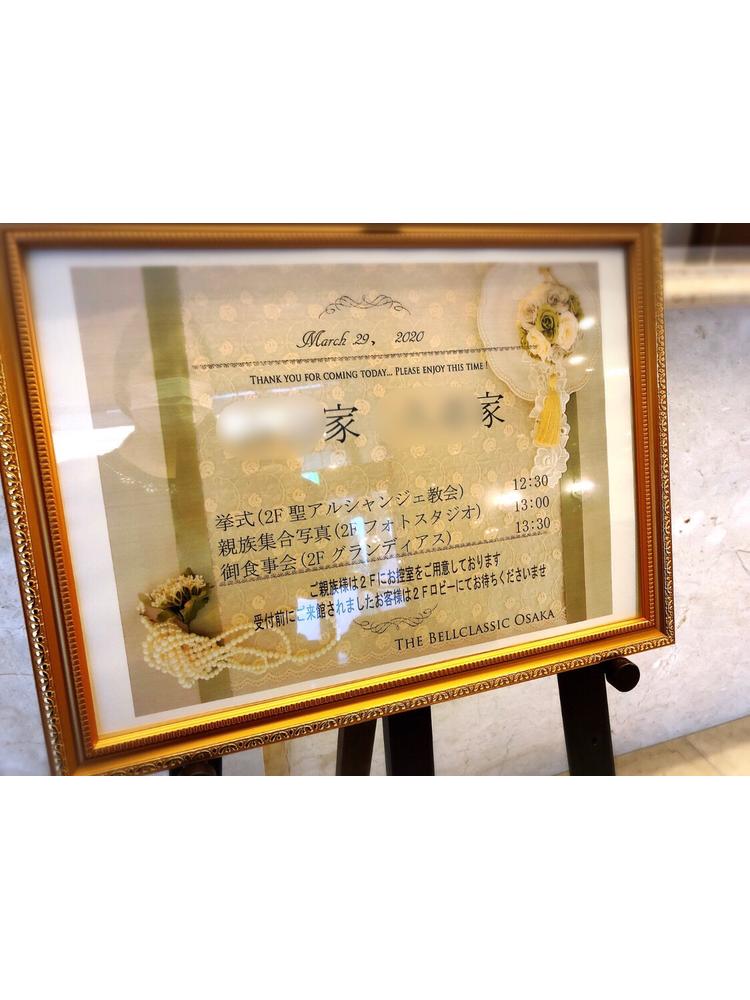 March 29, 2020
THANK YOU FOR COMING TODAY... PLEASE ENJOY THIS TIME !
家 家
挙式(2F 聖アルシャンジェ教会) 12:30
親族集合写真(2F フォトスタジオ) 13:00
御食事会(2F グランディアス) 13:30
ご親族様は2Fにお控室をご用意しております
受付前にご来館されましたお客様は2Fロビーにてお待ちくださいませ
THE BELLCLASSIC OSAKA